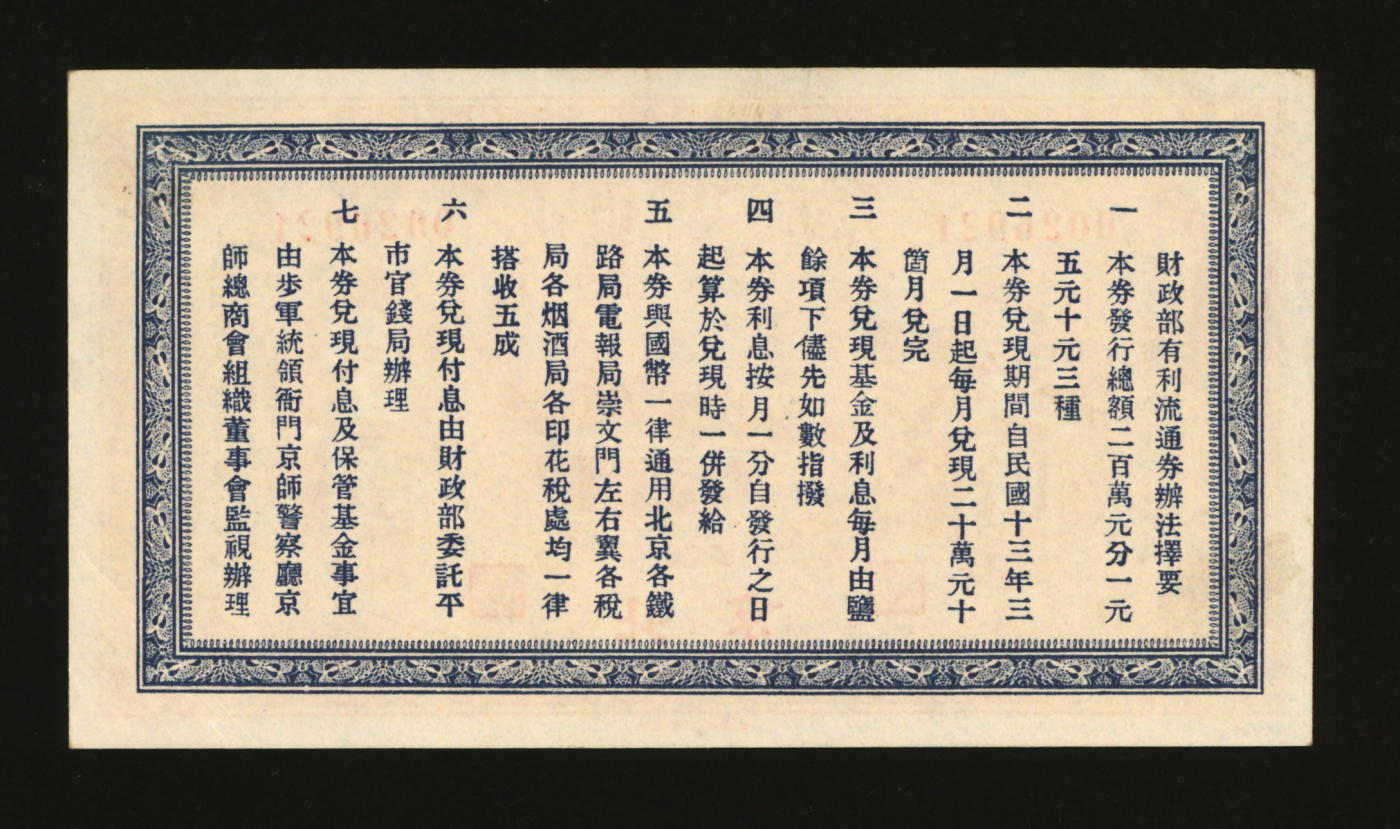 財政部有利流通券辦法擇要
一 本券發行總額二百萬元分一元
五元十元三種
二 本券兌現期間自民國十三年三
月一日起每月兌現二十萬元十
箇月兌完
三 本券兌現基金及利息每月由鹽
餘項下儘先如數指撥
四 本券利息按月一分自發行之日
起算於兌現時一併發給
五 本券與國幣一律通用北京各鐵
路局電報局崇文門左右翼各稅
局各烟酒局各印花稅處均一律
搭收五成
六 本券兌現付息由財政部委託平
市官錢局辦理
七 本券兌現付息及保管基金事宜
由步軍統領衙門京師警察廳京
師總商會組織董事會監視辦理